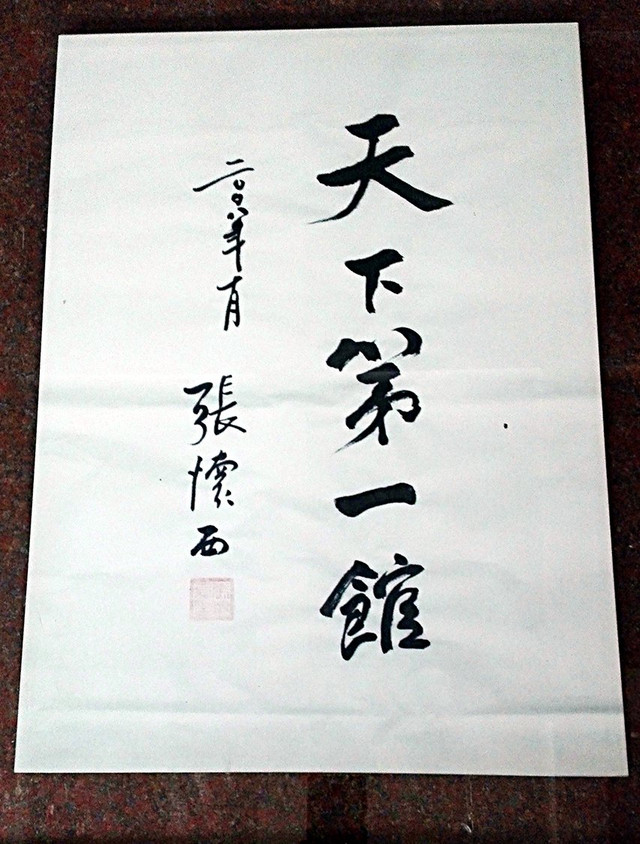 天下第一館
二〇〇八年十月 張懷西